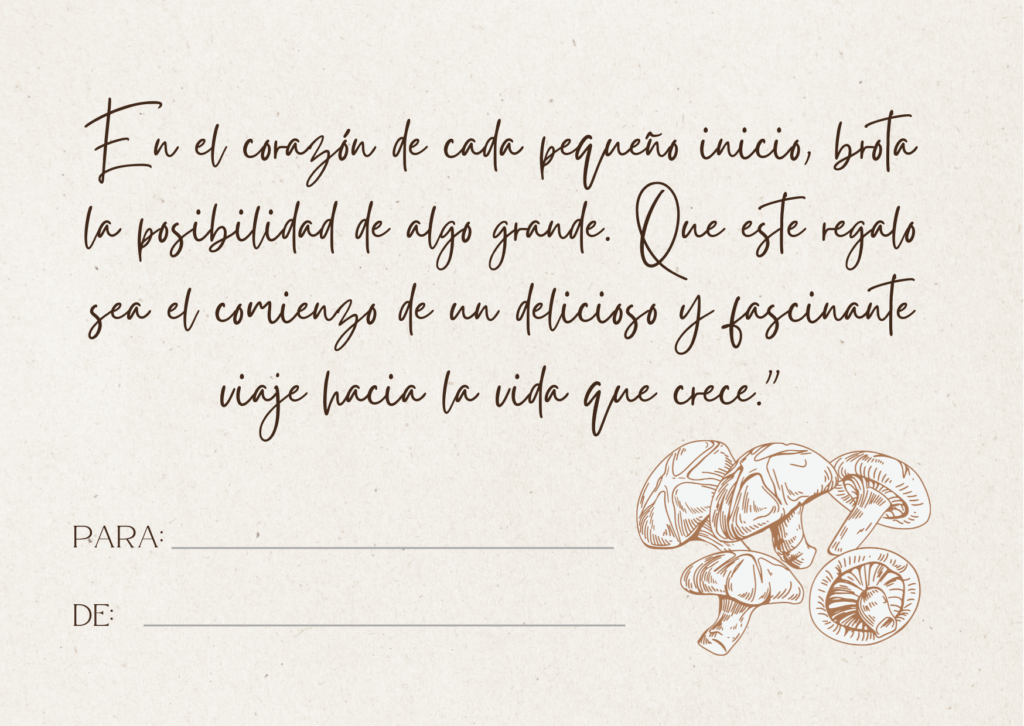 En el corazón de cada pequeño inicio, brota
la posibilidad de algo grande. Que este regalo
sea el comienzo de un delicioso y fascinante
viaje hacia la vida que crece.”
PARA:
DE: